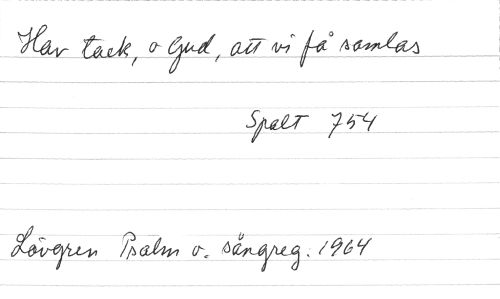 Hav tack, o Gud, att vi få samlas
Spalt 754
Lövgren Psalm o. sångreg. 1964